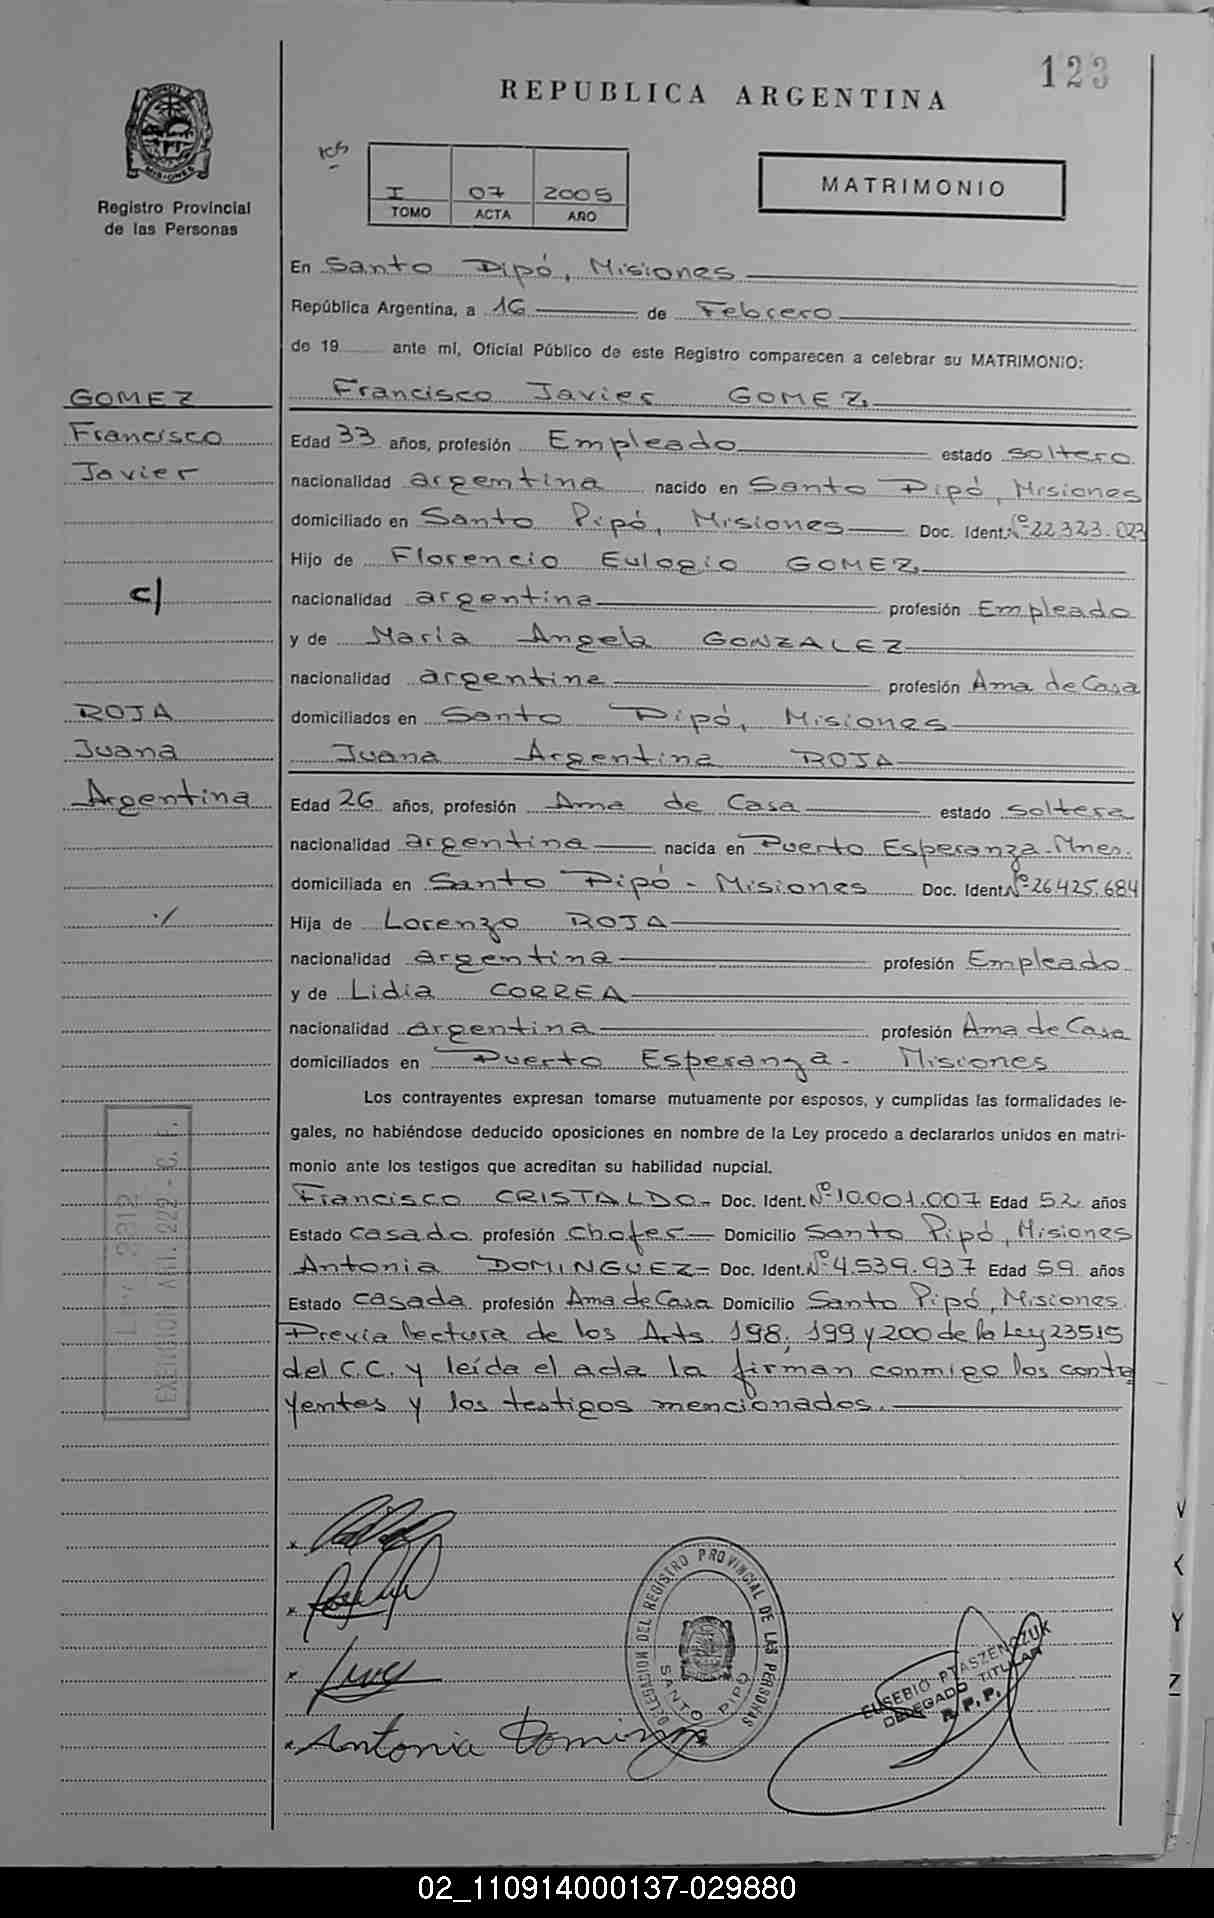 123
REPUBLICA ARGENTINA
MISIONES
Registro Provincial
de las Personas
I 07 2005
TOMO ACTA AÑO
MATRIMONIO
En Santo Pipó, Misiones
República Argentina, a 16 de Febrero
de 19 ante mí, Oficial Público de este Registro comparecen a celebrar su MATRIMONIO:
GOMEZ
Francisco
Javier
c/
ROJA
Juana
Argentina
./
Francisco Javier GOMEZ
Edad 33 años, profesión Empleado estado soltero
nacionalidad argentina nacido en Santo Pipó, Misiones
domiciliado en Santo Pipó, Misiones Doc. Ident. Nº 22.323.023
Hijo de Florencio Eulogio GOMEZ
nacionalidad argentina profesión Empleado
y de María Angela GONZALEZ
nacionalidad argentina profesión Ama de Casa
domiciliados en Santo Pipó, Misiones
Juana Argentina ROJA
Edad 26 años, profesión Ama de Casa estado soltera
nacionalidad argentina nacida en Puerto Esperanza - Mnes.
domiciliada en Santo Pipó - Misiones Doc. Ident. Nº 26.425.684
Hija de Lorenzo ROJA
nacionalidad argentina profesión Empleado
y de Lidia CORREA
nacionalidad argentina profesión Ama de Casa
domiciliados en Puerto Esperanza - Misiones
Los contrayentes expresan tomarse mutuamente por esposos, y cumplidas las formalidades le-
gales, no habiéndose deducido oposiciones en nombre de la Ley procedo a declararlos unidos en matri-
monio ante los testigos que acreditan su habilidad nupcial.
Francisco CRISTALDO - Doc. Ident. Nº 10.001.007 Edad 52 años
Estado casado profesión chofer Domicilio Santo Pipó, Misiones
Antonia DOMINGUEZ - Doc. Ident. Nº 4.539.937 Edad 59 años
Estado casada profesión Ama de Casa Domicilio Santo Pipó, Misiones
Previa lectura de los Arts. 198, 199 y 200 de la Ley 23515
del C.C. y leída el acta la firman conmigo los contra
yentes y los testigos mencionados.
Antonia Doming
DELEGACION DEL REGISTRO PROVINCIAL DE LAS PERSONAS
SANTO PIPO
EUSEBIO PTASZENCZUK
DELEGADO TITULAR
R. P. P.
02_110914000137-029880